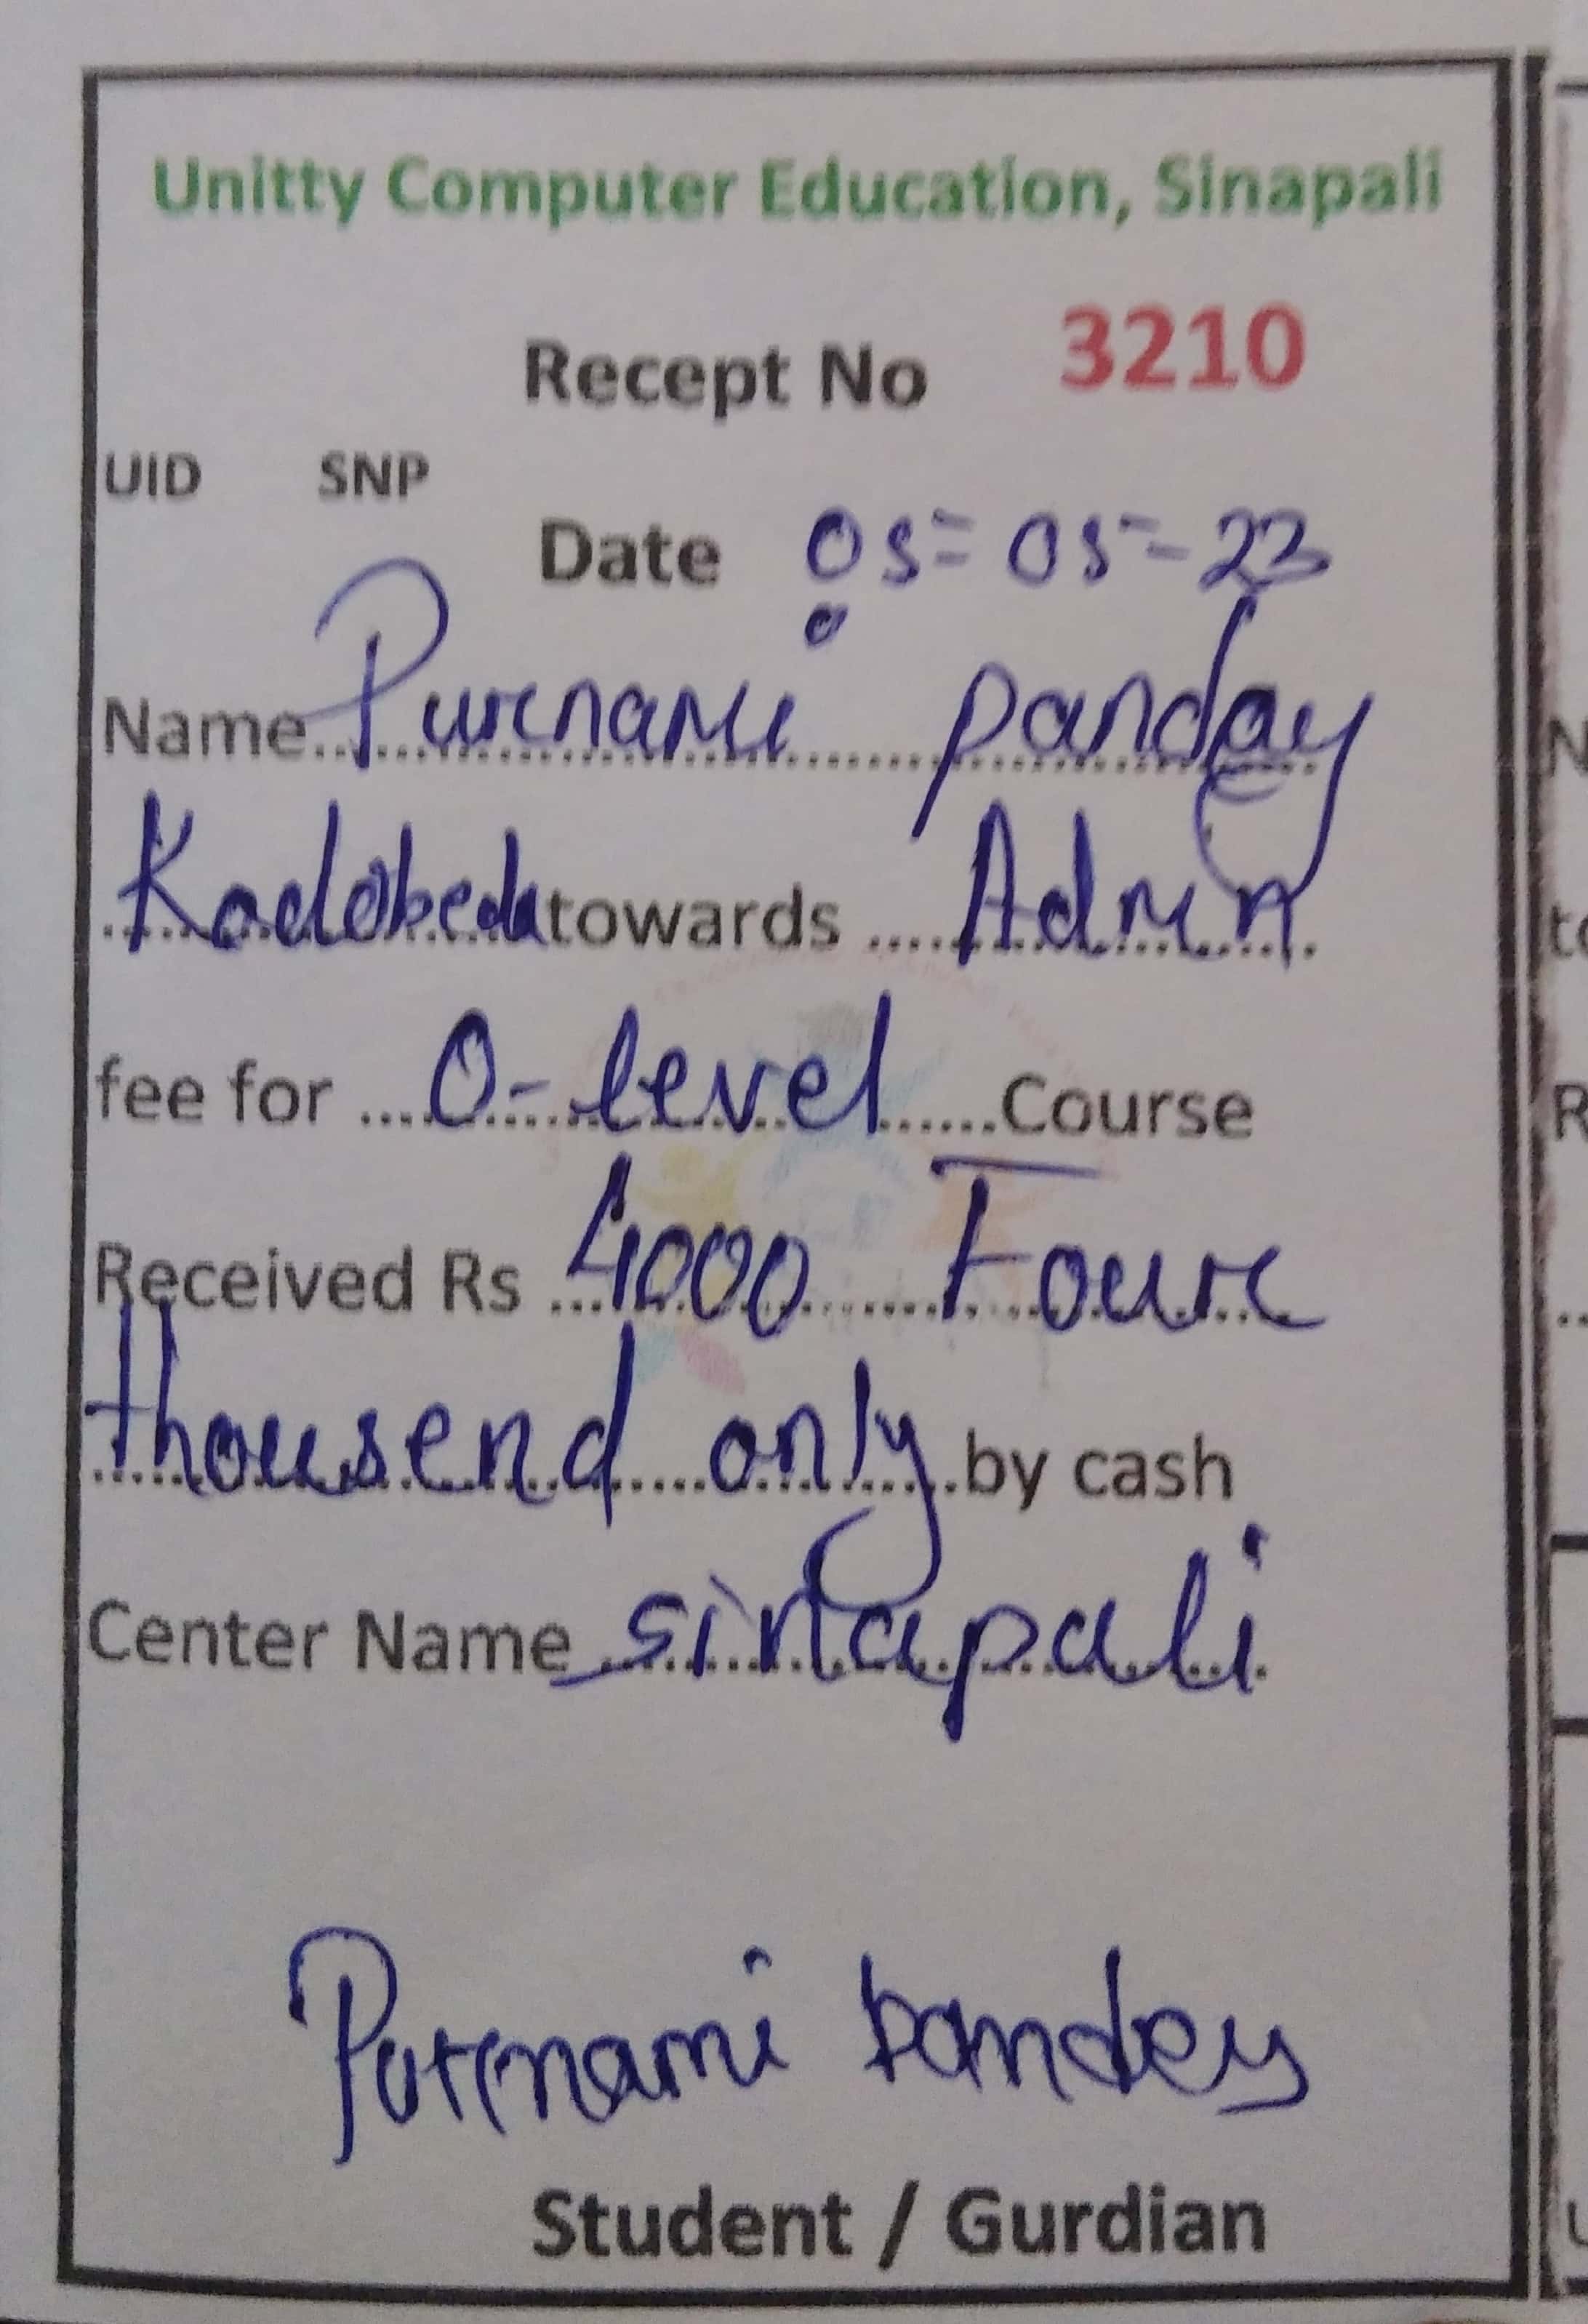 Unitty Computer Education, Sinapali
Recept No 3210
UID SNP
Date 05=05=23
Name Purnami panday
Kadobeda towards Admn
fee for O-level Course
Received Rs 4000 Four
thousend only by cash
Center Name sinapali
Purnami Pandey
Student / Gurdian